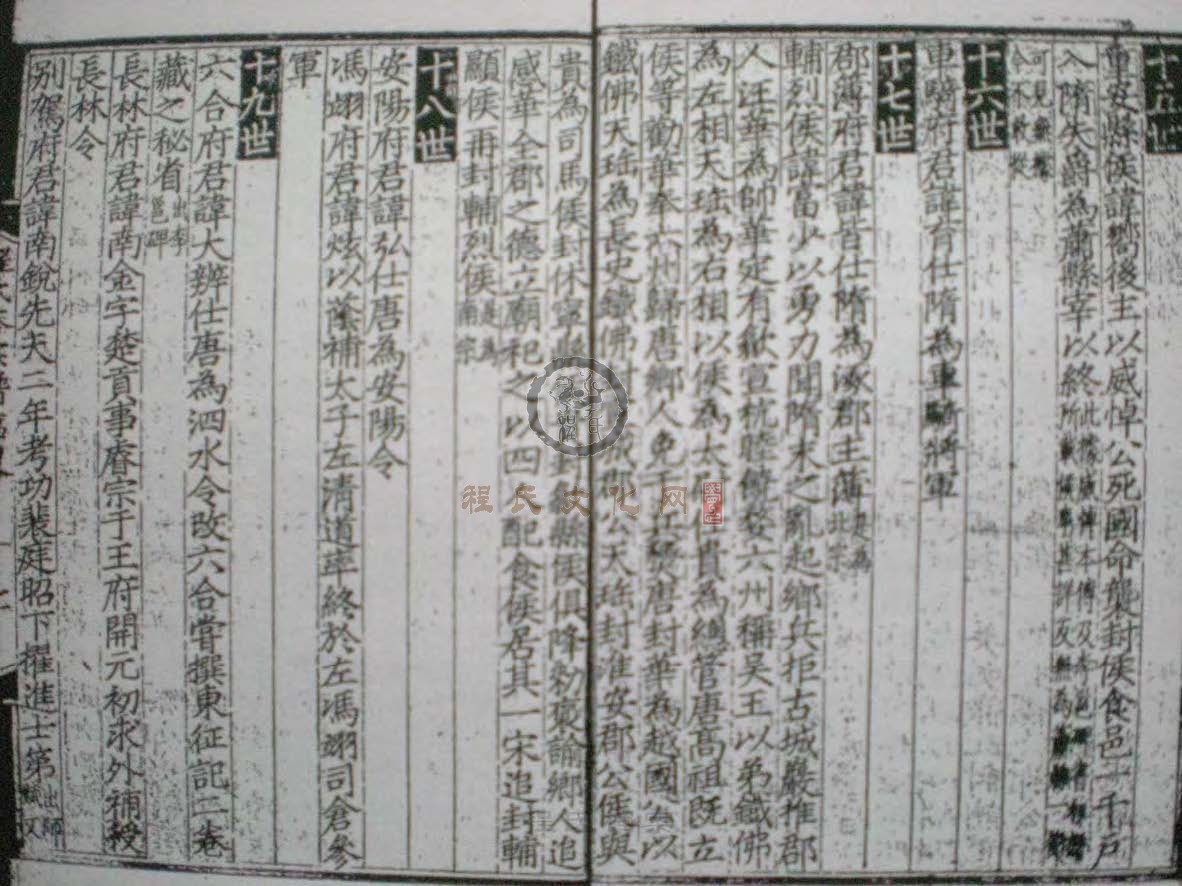 十五世
重安縣侯諱嚮後主以威悼公死國命襲封侯食邑一千戶
入隋失爵為蕭縣宰以終
十六世
車騎府君諱育仕隋為車騎將軍
十七世
郡薄府君諱晋仕隋為涿郡主薄是為北宗
輔烈侯諱富少以勇力聞隋末之亂起鄉兵拒古城巖推郡
人汪華為帥華定有歙宣杭睦饒婺六州稱吴王以弟鐵佛
為左相天珤為右相以侯為太 貴為總管唐高祖既立
侯等勸華奉六州歸唐鄉人免于 唐封華為越國公以
鐵佛天珤為長史鐵佛封 公天珤封淮安郡公侯與
貴為司馬侯封休寧縣 封歙縣侯俱降勑褒諭鄉人追
感華全郡之德立廟祀之以四 配食侯居其一宋追封輔
顯侯再封輔烈侯是為南宗
十八世
安陽府君諱弘仕唐為安陽令
馮翊府君諱炫以蔭補太子左清道率終於左馮翊司倉參
軍
十九世
六合府君諱大辨仕唐為泗水令改六合嘗撰東征記二卷
藏之秘省出李邕碑
長林府君諱南金字楚貢事睿宗于王府開元初求外補授
長林令
别駕府君諱南銳先天二年考功裴庭昭下擢進士第
程氏文化网